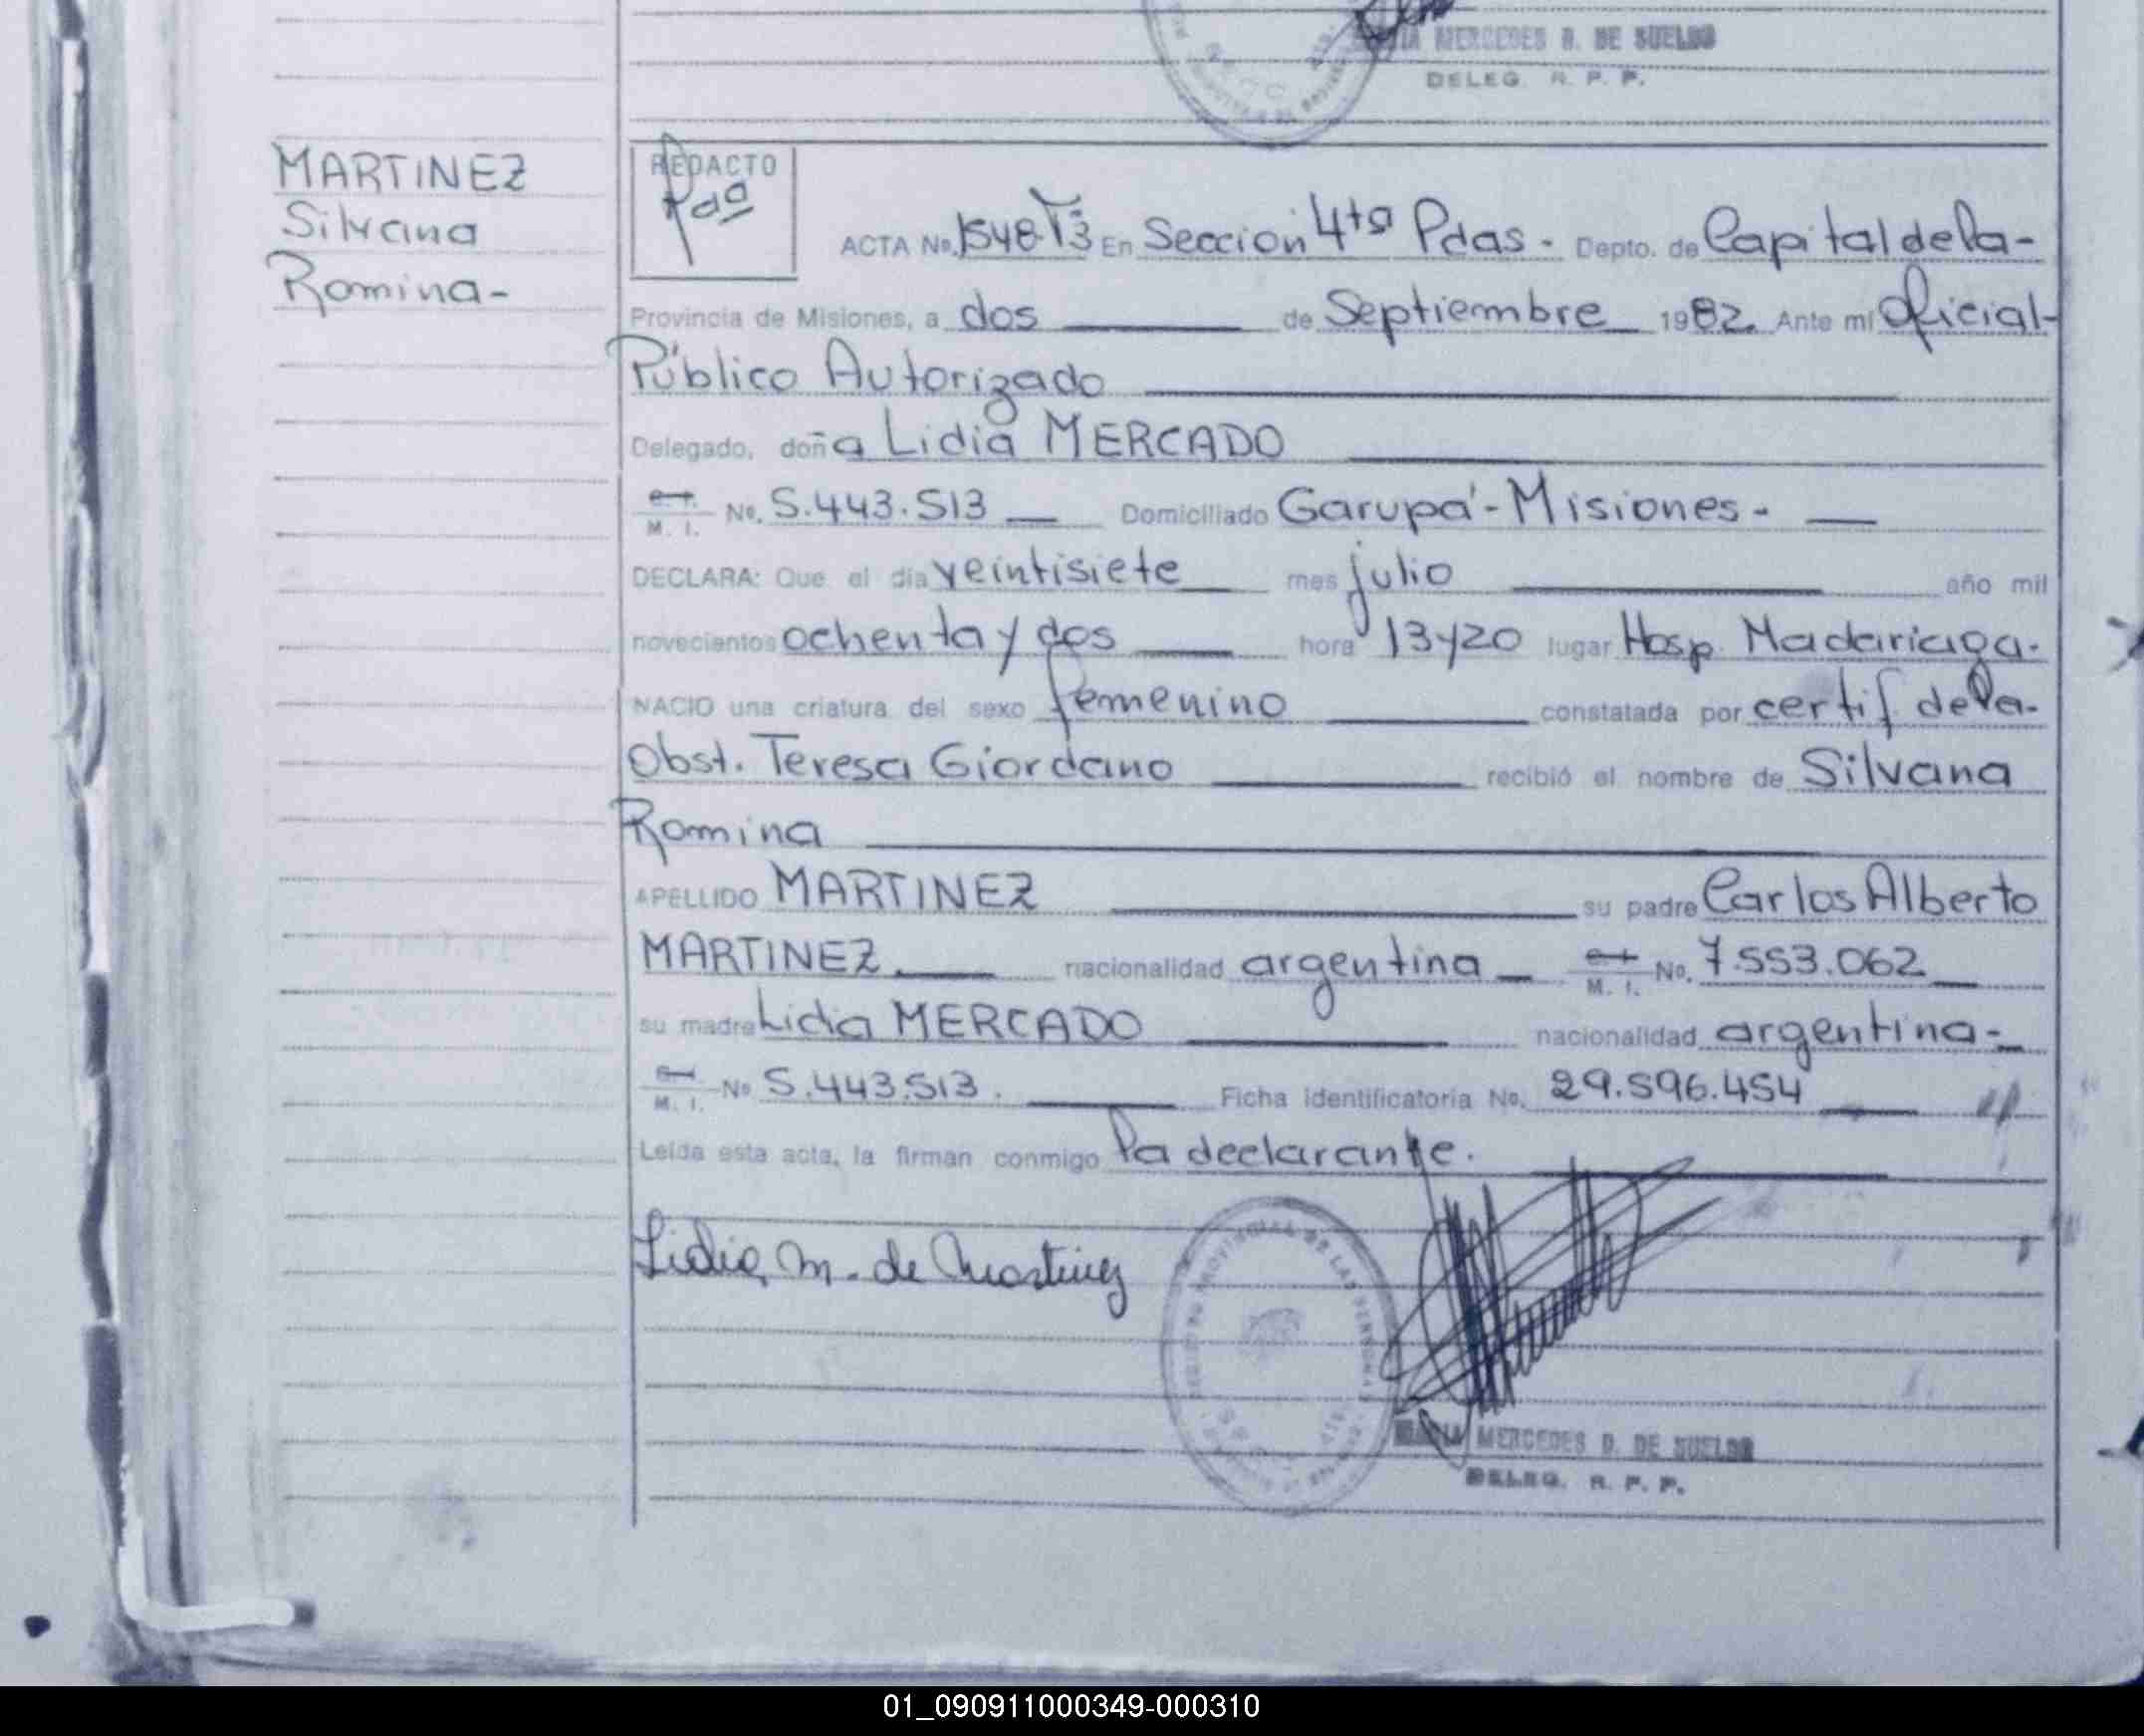 MERCEDES D. DE SUELDO
DELEG. R. P. P.
MARTINEZ
Silvana
Romina-
REDACTO
Pdas
ACTA No. 1548 T3 En Seccion 4ta Pdas. Depto. de Capital de la-
Provincia de Misiones, a dos de Septiembre 1982. Ante mí Oficial-
Público Autorizado
Delegado, doña Lidia MERCADO
M. I. No. 5.443.513 Domiciliado Garupá-Misiones-
DECLARA: Que el día veintisiete mes julio año mil
novecientos ochenta y dos hora 13y20 lugar Hosp. Madariaga.
NACIO una criatura del sexo femenino constatada por certif de la-
Obst. Teresa Giordano recibió el nombre de Silvana
Romina
APELLIDO MARTINEZ su padre Carlos Alberto
MARTINEZ nacionalidad argentina M. I. No. 7.553.062
su madre Lidia MERCADO nacionalidad argentina-
M. I. No 5.443.513. Ficha identificatoria No. 29.596.454
Leída esta acta, la firman conmigo la declarante.
Lidia M. de Martinez
REGISTRO PROVINCIAL DE LAS PERSONAS
MARIA MERCEDES D. DE SUELDO
DELEG. R. P. P.
01_090911000349-000310